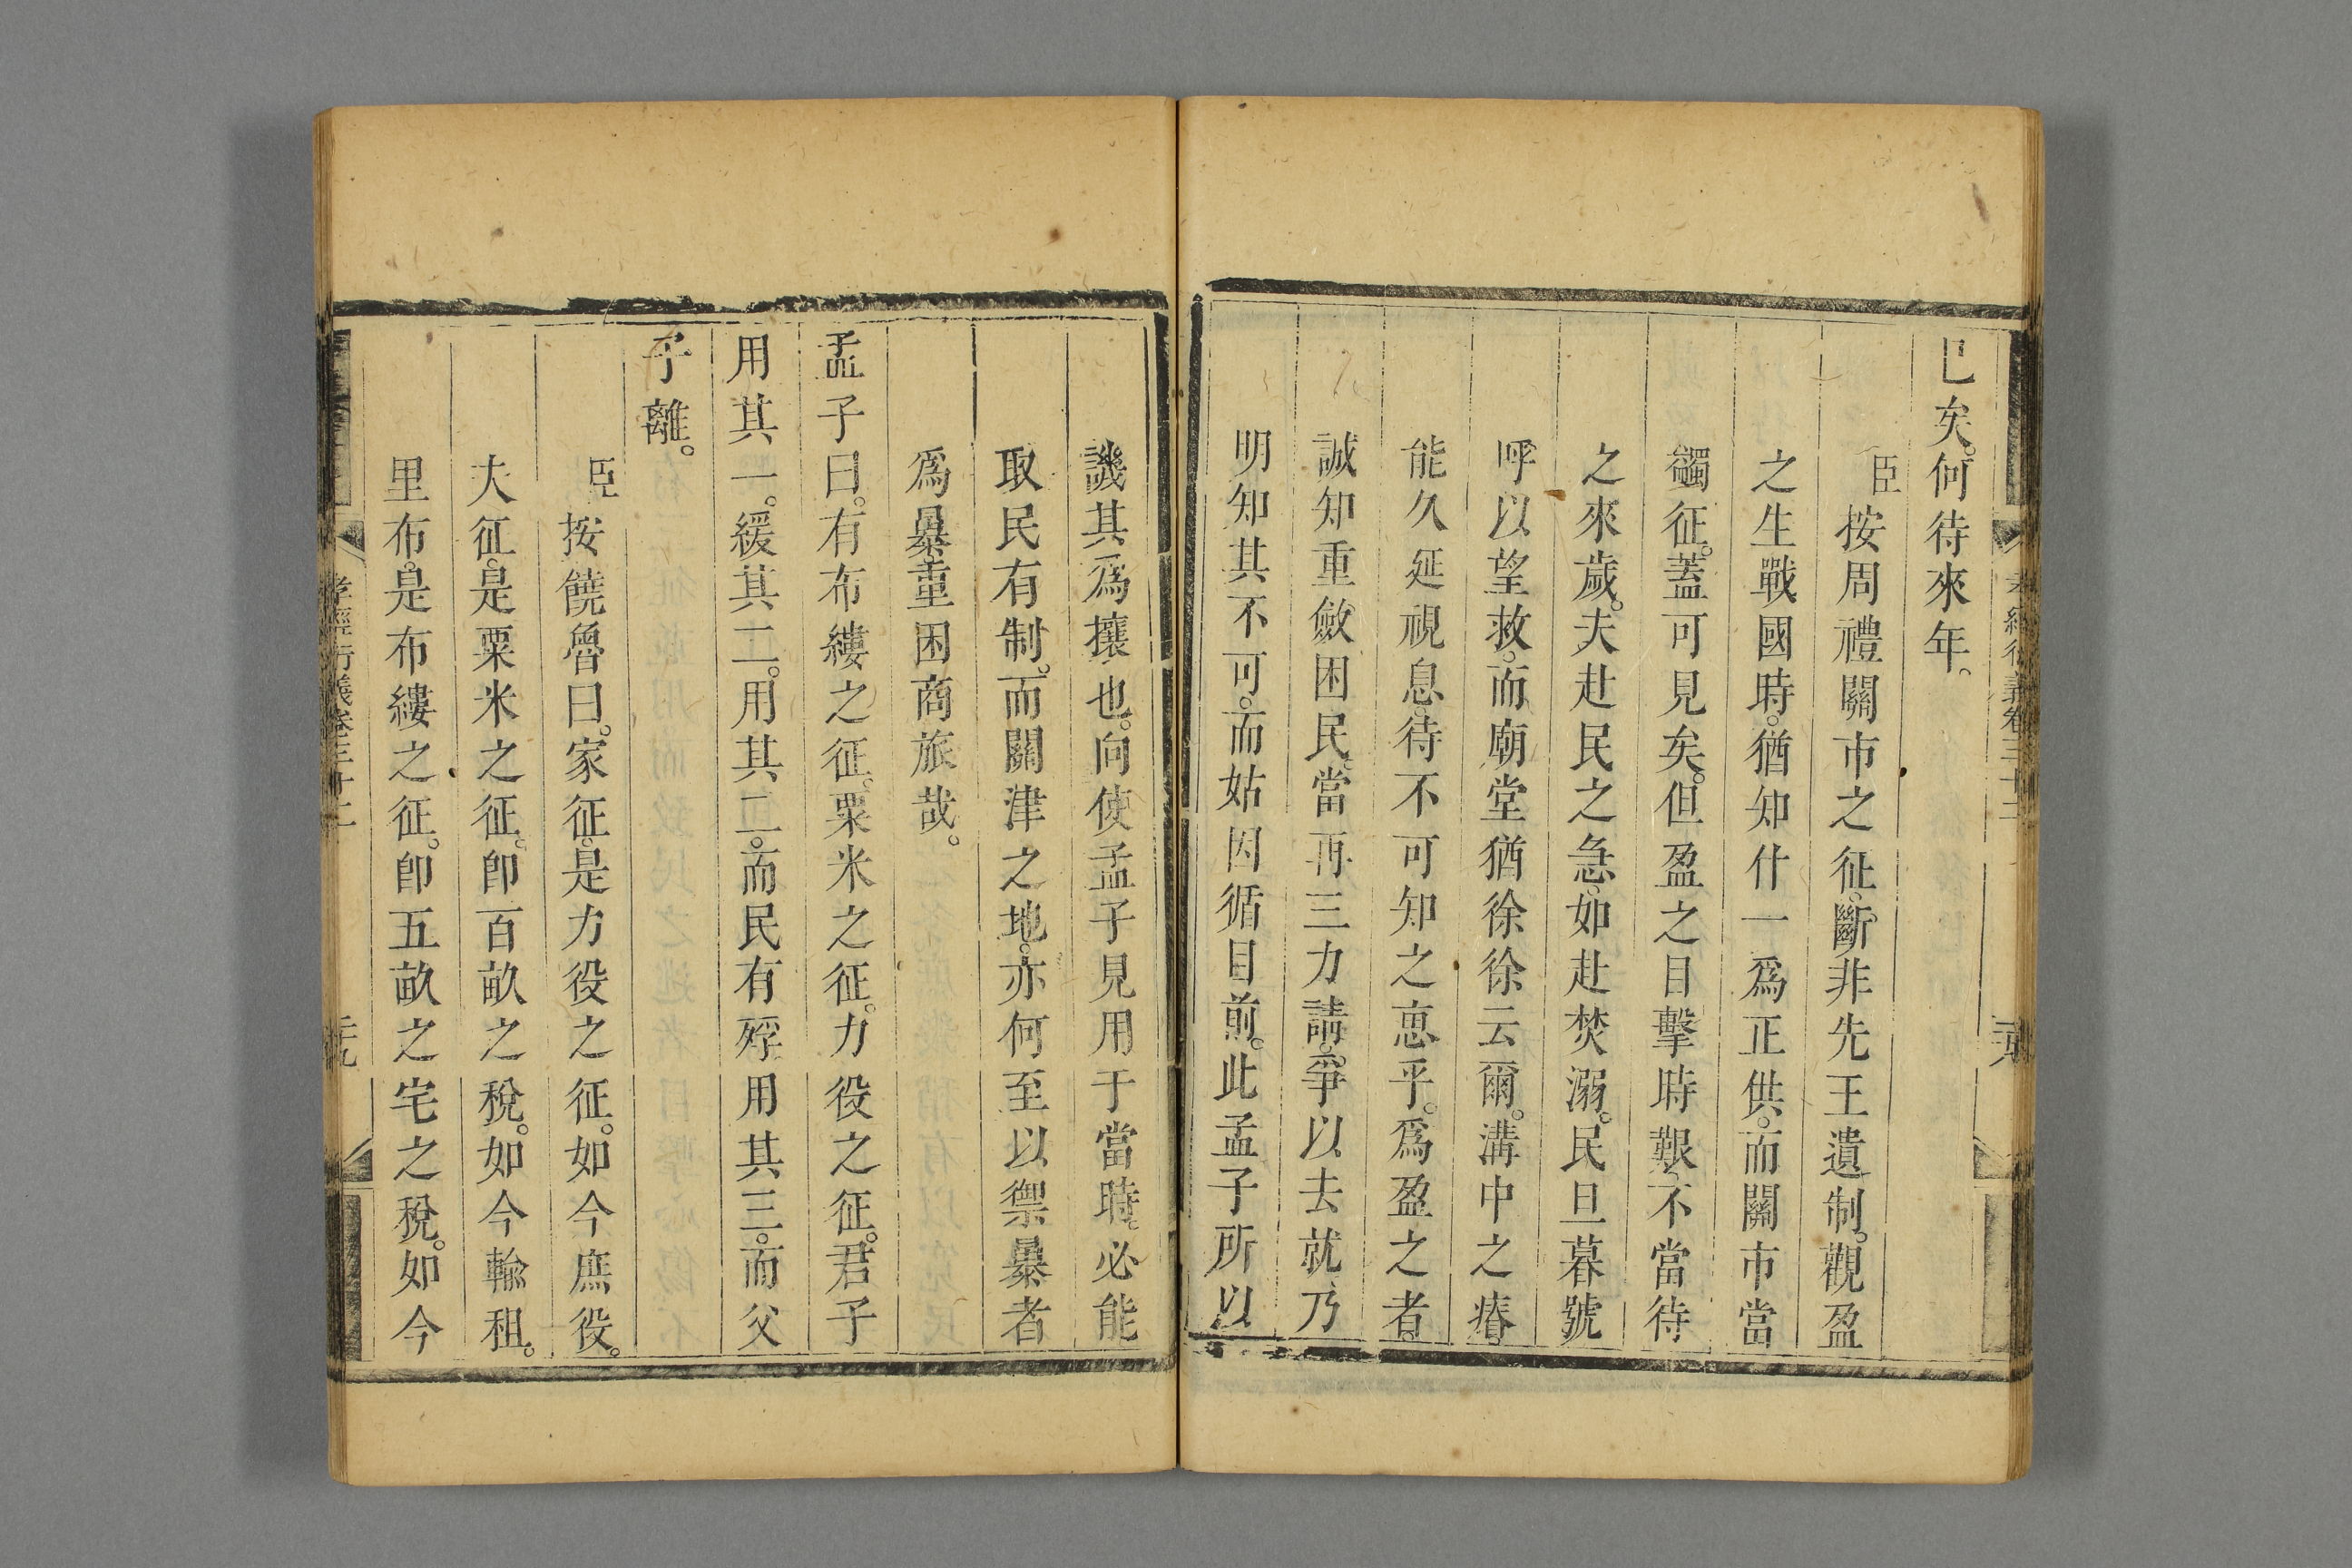 已矣。何待來年。
臣按周禮關市之征。斷非先王遺制。觀盈
之生戰國時。猶知什一爲正供。而關市當
蠲征。蓋可見矣。但盈之目擊時艱。不當待
之來歲。夫赴民之急。如赴焚溺。民旦暮號
呼以望救。而廟堂猶徐徐云爾。溝中之瘠。
能久延視息。待不可知之恵乎。爲盈之者。
誠知重斂困民。當再三力請。爭以去就。乃
明知其不可。而姑因循目前。此孟子所以
譏其爲攘也。向使孟子見用于當時。必能
取民有制。而關津之地。亦何至以禦暴者
爲暴。重困商旅哉。
孟子曰。有布縷之征。粟米之征。力役之征。君子
用其一。緩其二。用其二。而民有殍。用其三。而父
子離。
臣按饒魯曰。家征。是力役之征。如今庶役。
大征。是粟米之征。卽百畝之稅。如今輸租。
里布。是布縷之征。卽五畝之宅之稅。如今
孝經衍義卷三十二